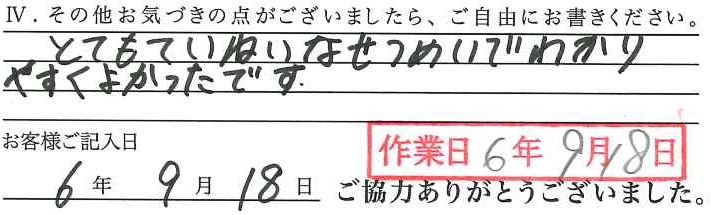 Ⅳ．その他お気づきの点がございましたら、ご自由にお書きください。
とてもていねいなせつめいでわかり
やすくよかったです.
お客様ご記入日
作業日 6年 9月18日
6 年 9 月 18 日 ご協力ありがとうございました。